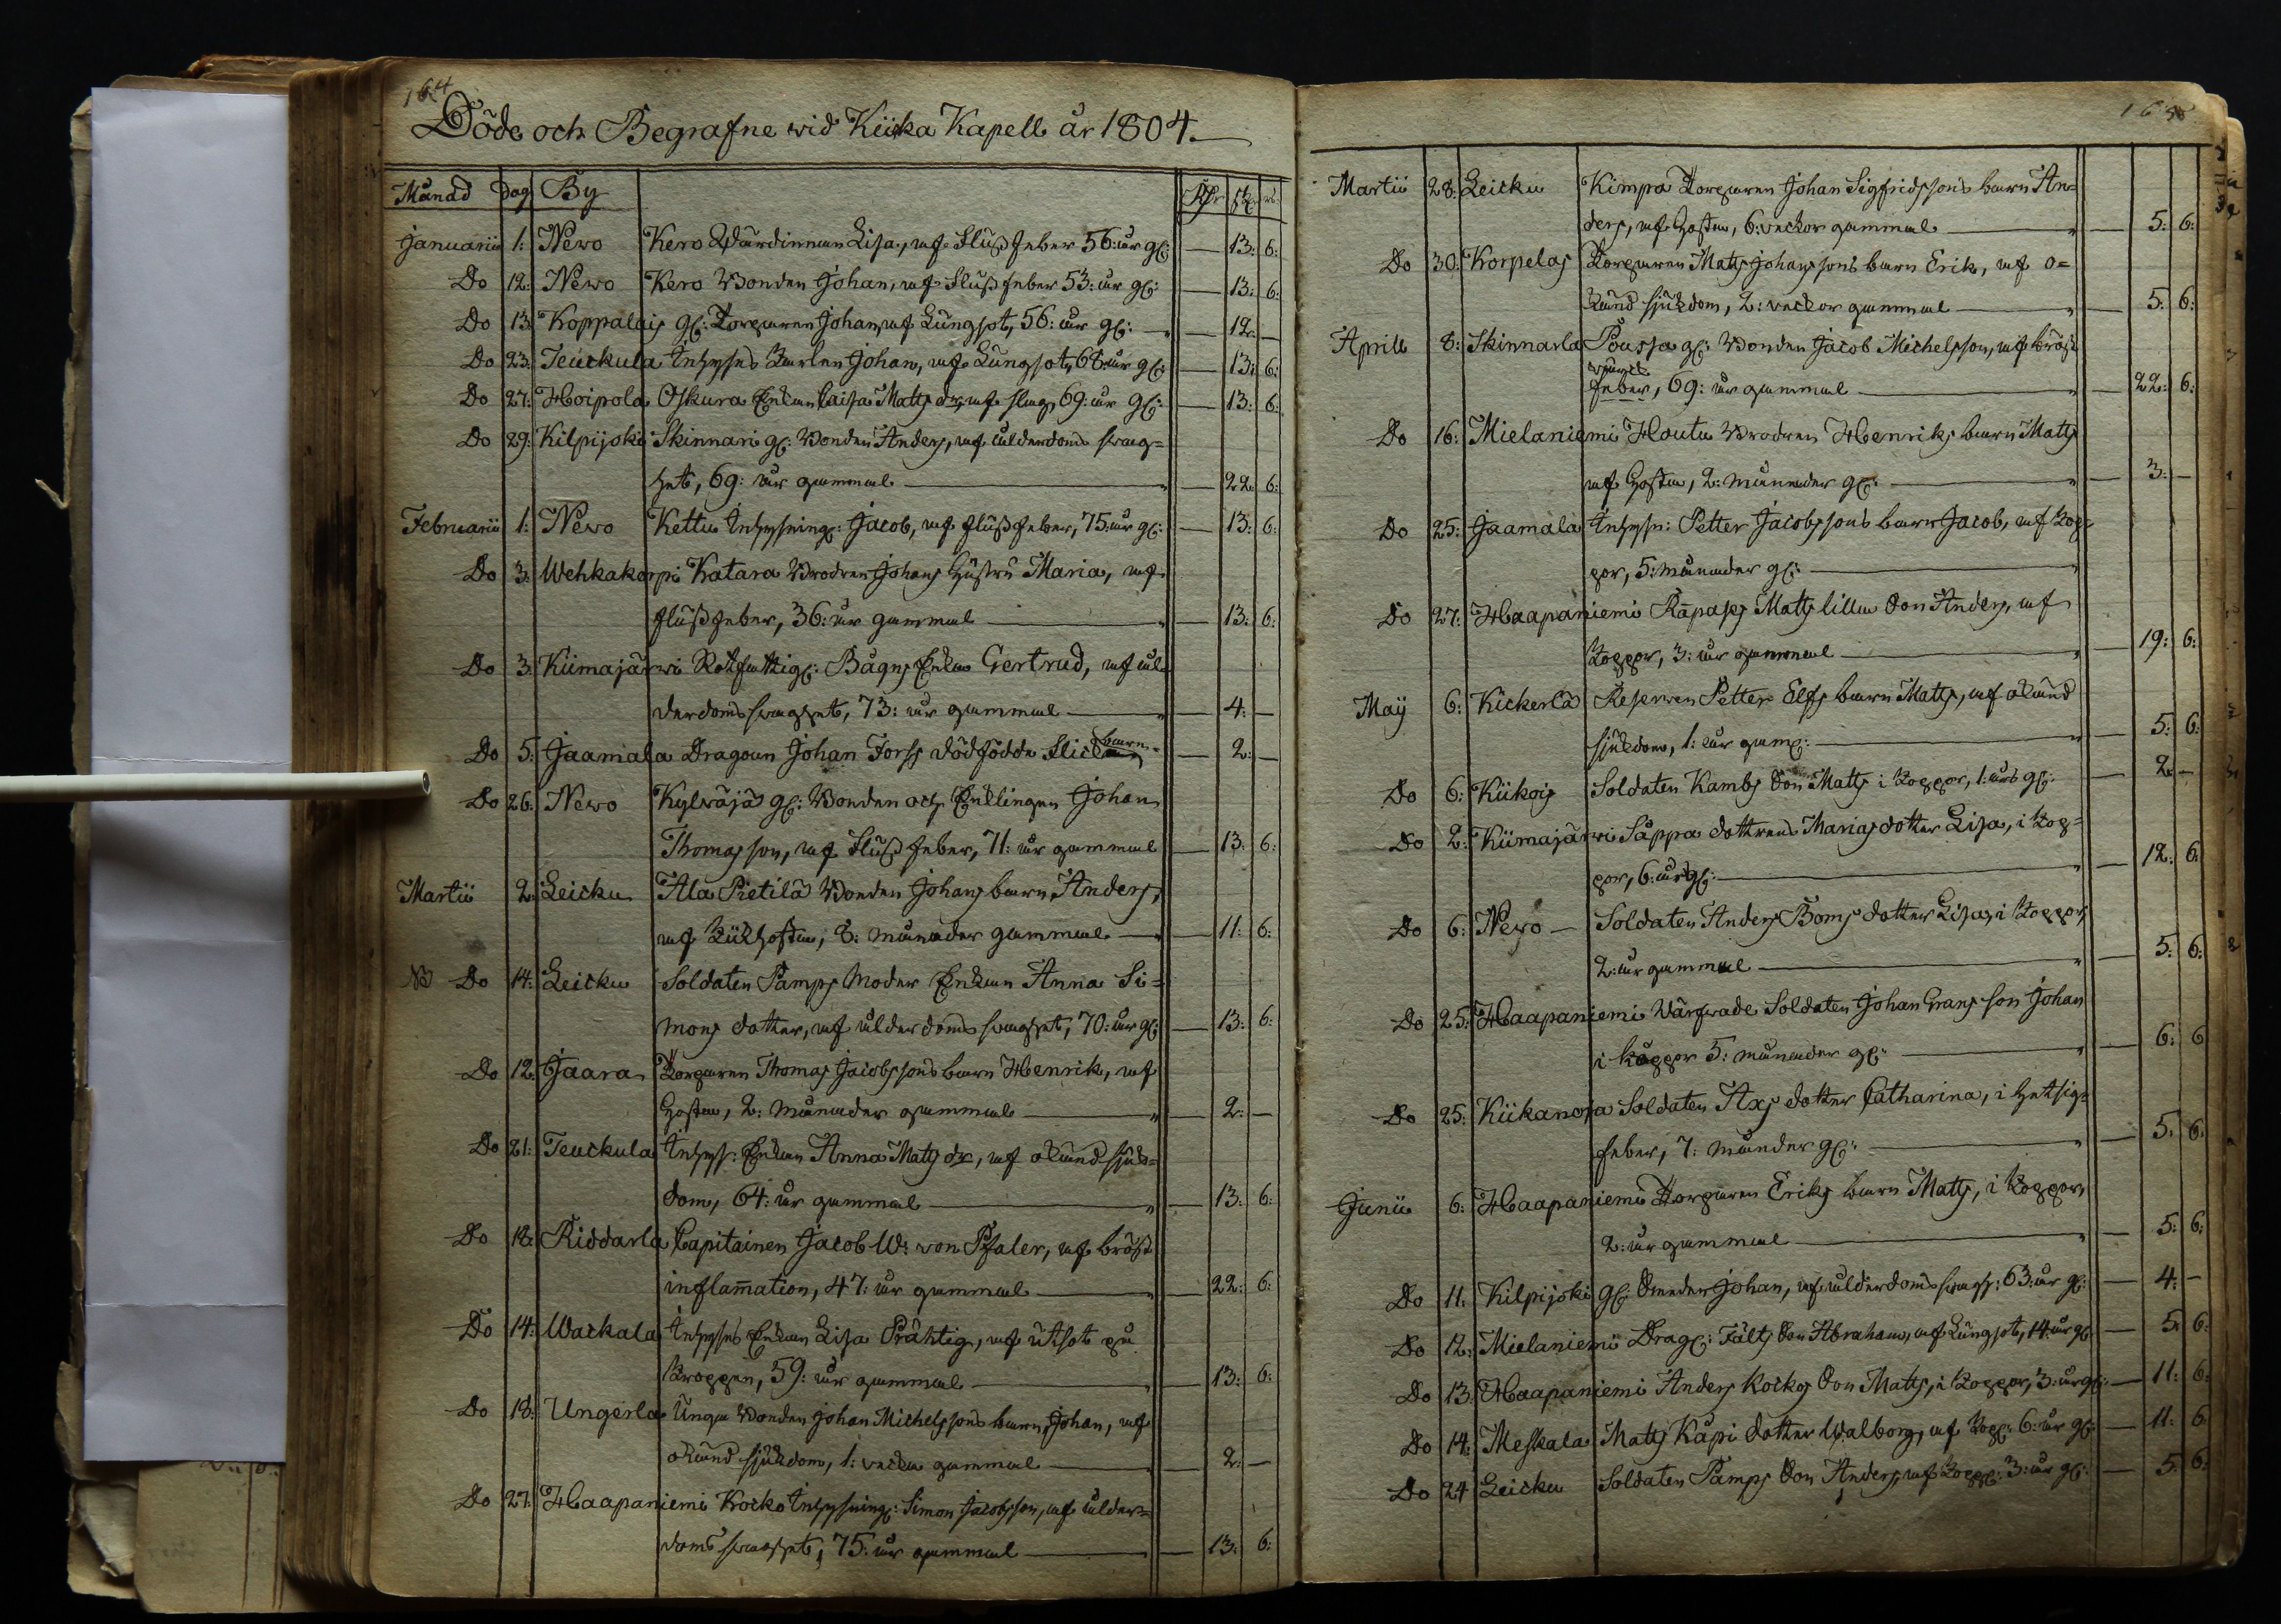 164
Döde och Begrafne wid Kiika Kapell år 1804.
Månad Dag By Rdr sk: rs:
Januarii 1: Newo Kero Wärdinnan Lisa, af Flussfeber 56: år gl: — 13: 6:
Do 12: Newo Kero Bonden Johan, af Flussfeber 53: år gl: — 13: 6:
Do 13: Koppalais gl: Torparen Johan, af Lungsot, 56: år gl: — 12: —
Do 23: Teuckula Inhyses Karlen Johan, af Lungsot, 68: år gl: — 13: 6:
Do 27: Hoipola Oskura Enkan Caisa Matts dr, af slag, 69: år gl: — 13: 6:
Do 29: Kilpijoki Skinnari gl: Bonden Anders, af ålderdoms swag=
het, 69: år gammal — 22: 6:
Februarii 1: Newo Kettu Inhysning: Jacob, af flussfeber, 75: år gl: — 13: 6:
Do 3: Wehkakorpi Katara Brodren Johans Hustru Maria, af
flussfeber, 36: år gammal — 13: 6:
Do 3: Kiimajärwi Rotfattig: Bågns Enka Gertrud, af ål=
derdoms swaghet, 73: år gammal — 4: —
Do 5: Jaamala Dragoun Johan Forss dödfödde Flicko barn — 2: —
Do 26: Newo Kylwäjä gl: Bonden och Enklingen Johan
Thomasson, af Flussfeber, 71: år gammal — 13: 6:
Martii 2: Leicku Ala Pietilä Bonden Johans barn Anders,
af Kikhosta, 8: månader gammal — 11: 6:
NB Do 14: Leicku Soldaten Pamps Moder Enkan Anna Si=
mons dotter, af ålderdoms swaghet, 70: år gl: — 13: 6:
Do 12: Jaara Torparen Thomas Jacobssons barn Henrik, af
Hosta, 2: månader gammal — 2: —
Do 21: Teuckula Inhys: Enkan Anna Matts dr, af okänd sjuk=
dom, 64: år gammal — 13: 6:
Do 18: Riddarla Capitainen Jacob W: von Pfaler, af bröst
inflam̄ation, 47: år gammal — 22: 6:
Do 14: Wackala Inhyses Enkan Lisa Präktig, af utsot på
kroppen, 59: år gammal — 13: 6:
Do 18: Ungerla Unga Bonden Johan Michelssons barn Johan, af
okänd sjukdom, 1: vecka gammal — 2: —
Do 27: Haapaniemi Kocko Inhysning: Simon Jacobsson, af ålder=
doms swaghet, 75: år gammal — 13: 6:
Martii 28: Leicku Kimpa Torparen Johan Sigfridssons barn An=
ders, af Hosta, 6: veckor gammal — 5: 6:
Do 30: Korpelas Torparen Matts Johanssons barn Erik, af o=
känd sjukdom, 2: veckor gammal — 5: 6:
Aprill 8: Skinnarla Poussa gl: Bonden Jacob Michelsson, af bröst
feber, 69: år gammal — 22: 6:
Do 16: Mielaniemi Houtu Brodren Henriks barn Matts
af Hosta, 2: månader gl: — 3: —
Do 25: Jaamala Inhys: Petter Jacobssons barn Jacob, af Kop=
por, 5: månader gl: —
Do 27: Haapaniemi Räpass Matts lilla Son Anders, af
Koppor, 3: år gammal — 19: 6:
Maij 6: Kickerlä Reserven Petter Elfs barn Matts, af okänd
sjukdom, 1: år gam: — 5: 6:
Do 6: Kiikois Soldaten Kambs Son Matts i Koppor, 1: års gl: — 2: —
Do 2: Kiimajärwi Säppa dottrens Marias dotter Lisa, i Kop=
por, 6: års gl: — 12: 6:
Do 6: Newo — Soldaten Anders Boms dotter Lisa, i Koppor,
2: år gammal — 5: 6:
Do 25: Haapaniemi Wärfwade Soldaten Johan Grans son Johan
i Koppor 5: månader gl: — 6: 6
Do 25: Kiikanoja Soldaten Axs dotter Catharina, i hetsig=
feber, 7: månder gl: — 5: 6:
Junii 6: Haapaniemi Torparen Eriks barn Matts, i Koppor,
2: år gammal — 5: 6:
Do 11: Kilpijoki gl: Johan, af ålderdoms swagh: 63: år gl: — 4: —
Do 12: Mielaniemi Drag: Fälts Son Abraham, af Lungsot, 14: år gl: — 5: 6:
Do 13: Haapaniemi Anders Kockos Son Matts, i Koppor, 3: år gl: — 11: 6:
Do 14: Meskala Matts Käpi dotter Walborg, af Kop: 6: år gl: — 11: 6:
Do 24 Leicku Soldaten Pamps Son Anders, af Kopp: 3: år gl: — 5: 6: